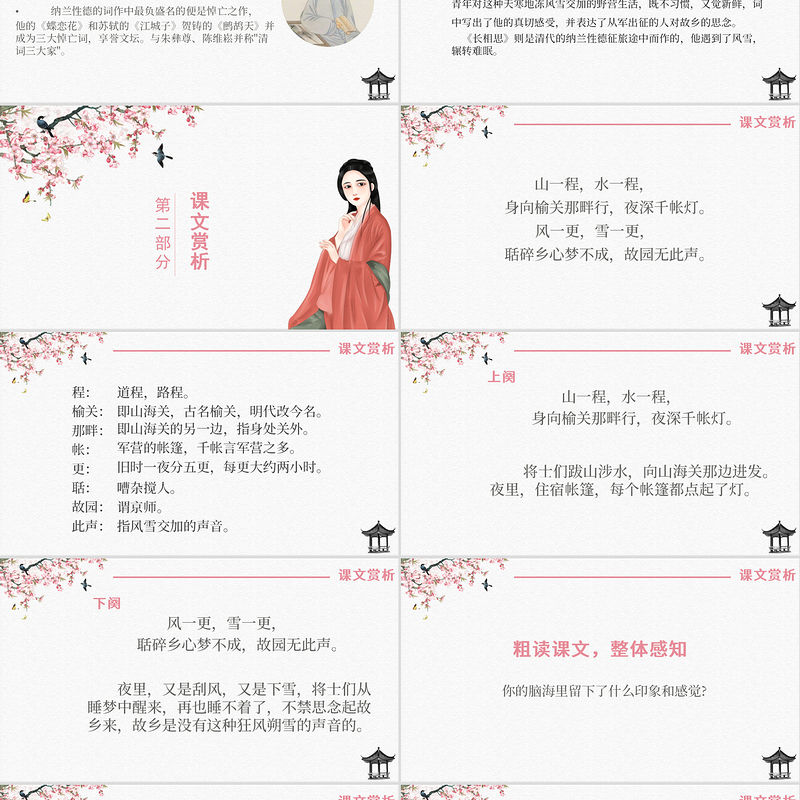 • 纳兰性德的词作中最负盛名的便是悼亡之作，
他的《蝶恋花》和苏轼的《江城子》贺铸的《鹧鸪天》并
成为三大悼亡词，享誉文坛。与朱彝尊、陈维崧并称"清
词三大家"。
青年对这种天寒地冻风雪交加的野营生活，既不习惯，又觉新鲜，词
中写出了他的真切感受，并表达了从军出征的人对故乡的思念。
《长相思》则是清代的纳兰性德征旅途中而作的，他遇到了风雪，
辗转难眠。
课文赏析
第二部分
课文赏析
山一程，水一程，
身向榆关那畔行，夜深千帐灯。
风一更，雪一更，
聒碎乡心梦不成，故园无此声。
课文赏析
程： 道程，路程。
榆关： 即山海关，古名榆关，明代改今名。
那畔： 即山海关的另一边，指身处关外。
帐： 军营的帐篷，千帐言军营之多。
更： 旧时一夜分五更，每更大约两小时。
聒： 嘈杂搅人。
故园： 谓京师。
此声： 指风雪交加的声音。
课文赏析
上阕
山一程，水一程，
身向榆关那畔行，夜深千帐灯。
将士们跋山涉水，向山海关那边进发。
夜里，住宿帐篷，每个帐篷都点起了灯。
课文赏析
下阕
风一更，雪一更，
聒碎乡心梦不成，故园无此声。
夜里，又是刮风，又是下雪，将士们从
睡梦中醒来，再也睡不着了，不禁思念起故
乡来，故乡是没有这种狂风朔雪的声音的。
课文赏析
粗读课文，整体感知
你的脑海里留下了什么印象和感觉?